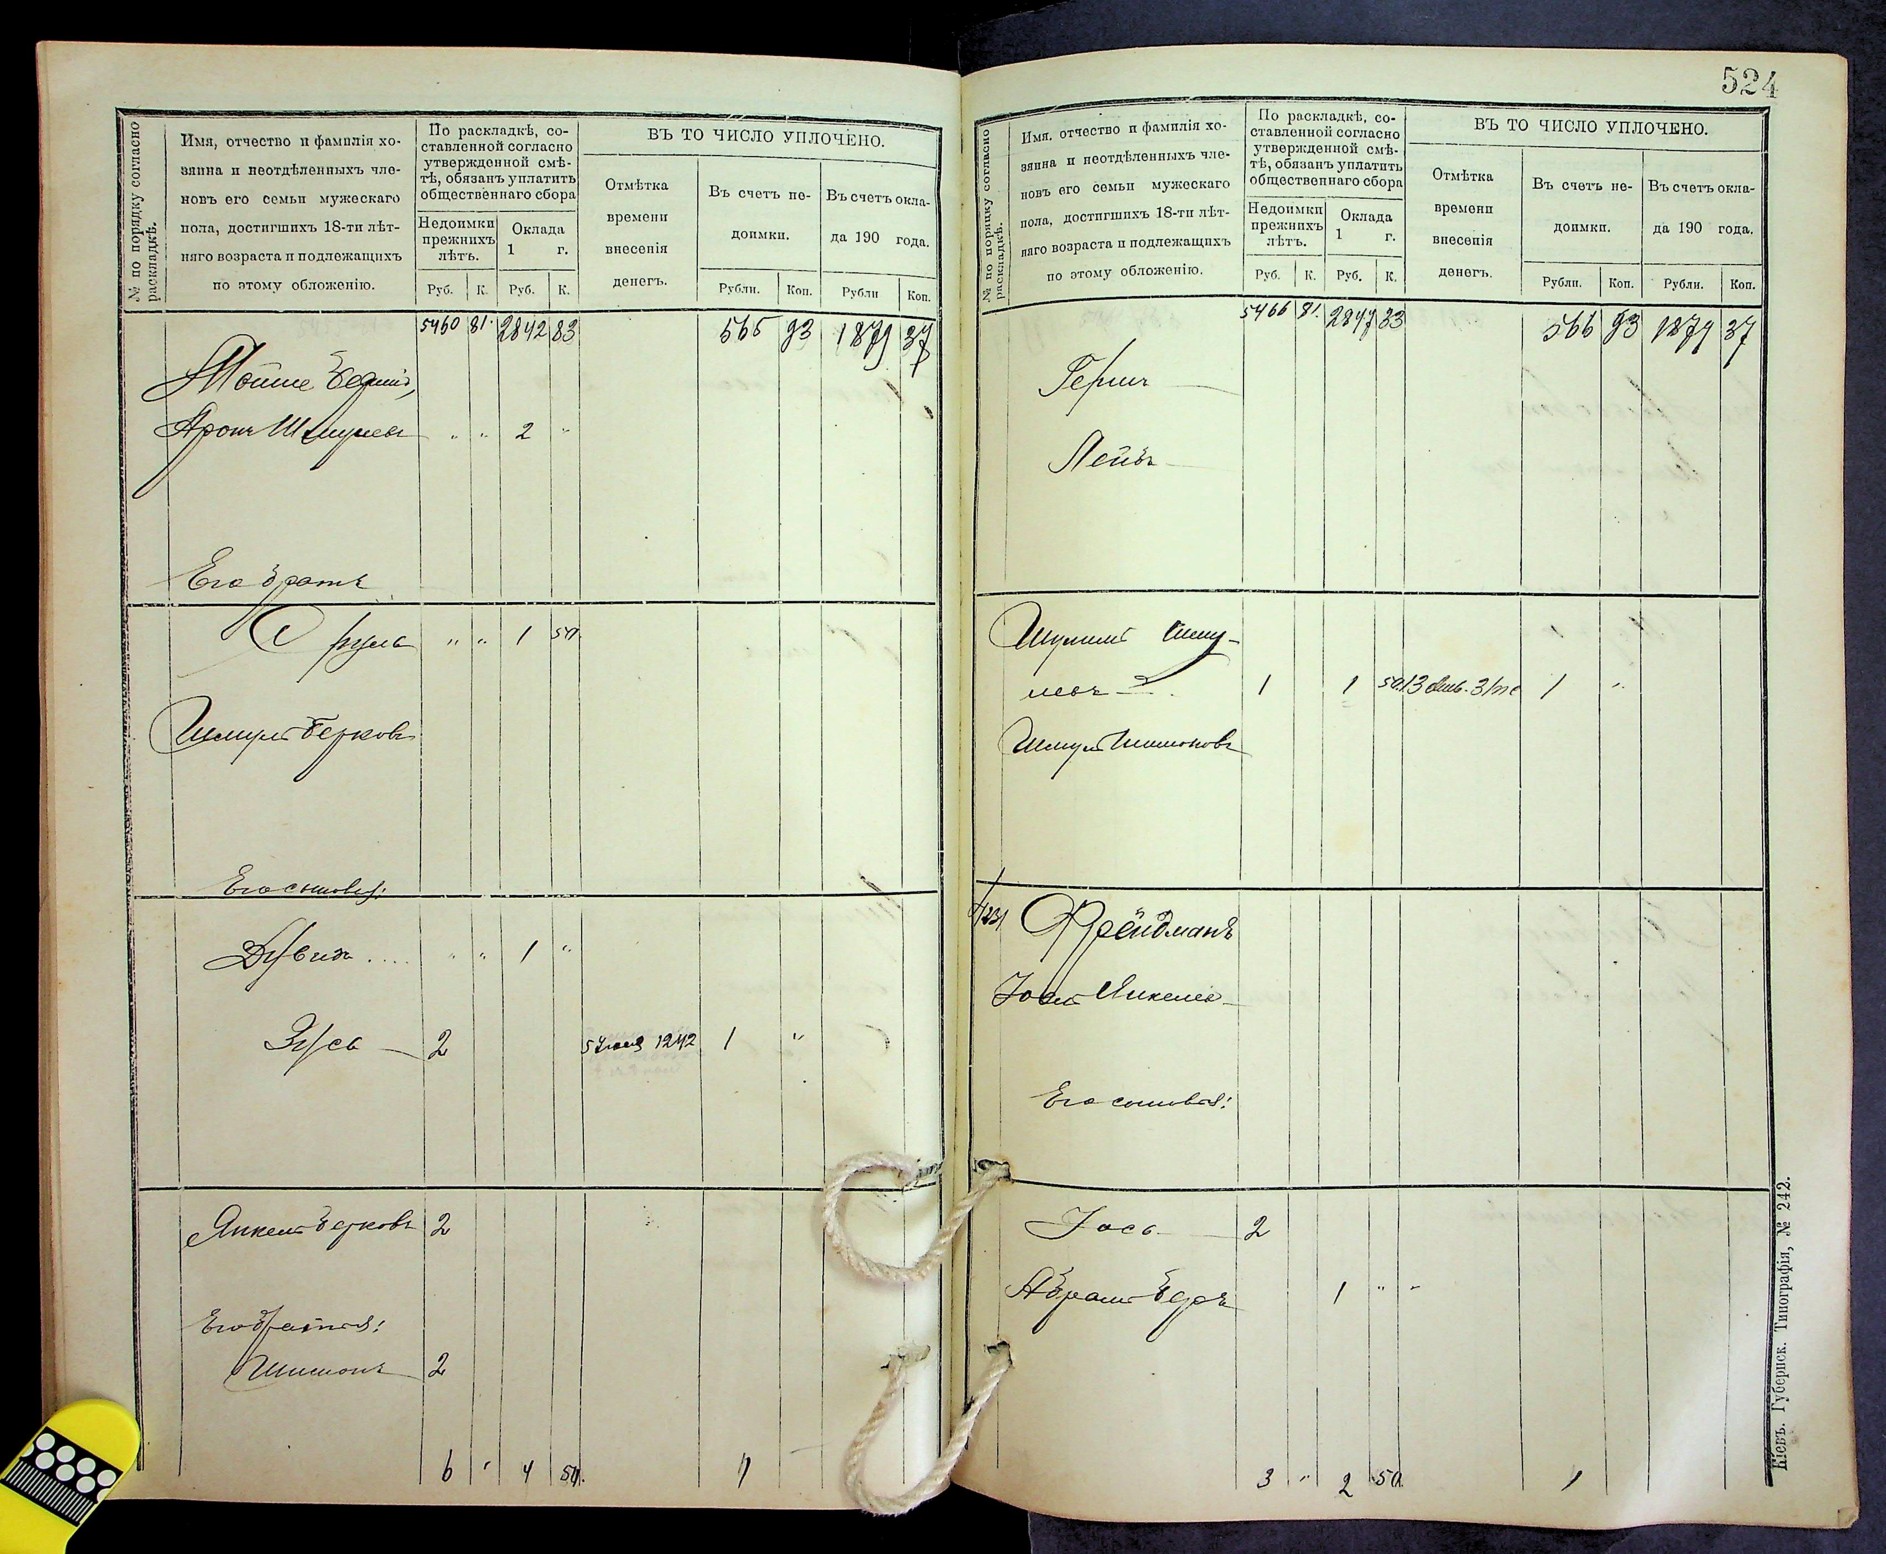 524
№ по порядку согласно раскладкѣ.
Имя, отчество и фамилія хо-
зяина и неотдѣленныхъ чле-
новъ его семьи мужескаго
пола, достигшихъ 18-ти лѣт-
няго возраста и подлежащихъ
по этому обложенію.
По раскладкѣ, со-
ставленной согласно
утвержденной смѣ-
тѣ, обязанъ уплатить
общественнаго сбора
Недоимки
прежнихъ
лѣтъ.
Оклада
1 г.
Руб. К. Руб. К.
ВЪ ТО ЧИСЛО УПЛОЧЕНО.
Отмѣтка
времени
внесенія
денегъ.
Въ счетъ не-
доимки.
Въ счетъ окла-
да 190 года.
Рубли. Коп. Рубли Коп.
5460 81. 2842 83 565 93 1879 37
Мойше
Аронъ Шмулевъ " " 2 "
Его братъ
Сруль " " 1 50.
Шмуль Берковъ
Его сыновья:
Дувидъ .... " " 1 "
Зусь 2 5 1242 1 "
Янкель Берковъ 2
Его братья:
Шимонъ 2
6 " 4 50. 1
№ по порядку согласно раскладкѣ.
Имя, отчество и фамилія хо-
зяина и неотдѣленныхъ чле-
новъ его семьи мужескаго
пола, достигшихъ 18-ти лѣт-
няго возраста и подлежащихъ
по этому обложенію.
По раскладкѣ, со-
ставленной согласно
утвержденной смѣ-
тѣ, обязанъ уплатить
общественнаго сбора
Недоимки
прежнихъ
лѣтъ.
Оклада
1 г.
Руб. К. Руб. К.
ВЪ ТО ЧИСЛО УПЛОЧЕНО.
Отмѣтка
времени
внесенія
денегъ.
Въ счетъ не-
доимки.
Въ счетъ окла-
да 190 года.
Рубли. Коп. Рубли. Коп.
5466 81. 2847 33 566 93 1879 37
Гершъ
Лейбъ
Шулимъ Шму-
левъ 1 1 50 13 1 "
Шмуль Шимоновъ
Фрейдманъ
Іось Янкелев
Его сыновья:
Іось 2
Абрамъ Беръ 1 " "
3 " 2 50. 1
Кіевъ. Губернск. Типографія, № 242.